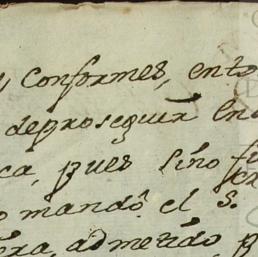 y conformes, ento
de proseguir en
ca, pues sino fu
o mandó el S.
era, admetido, p